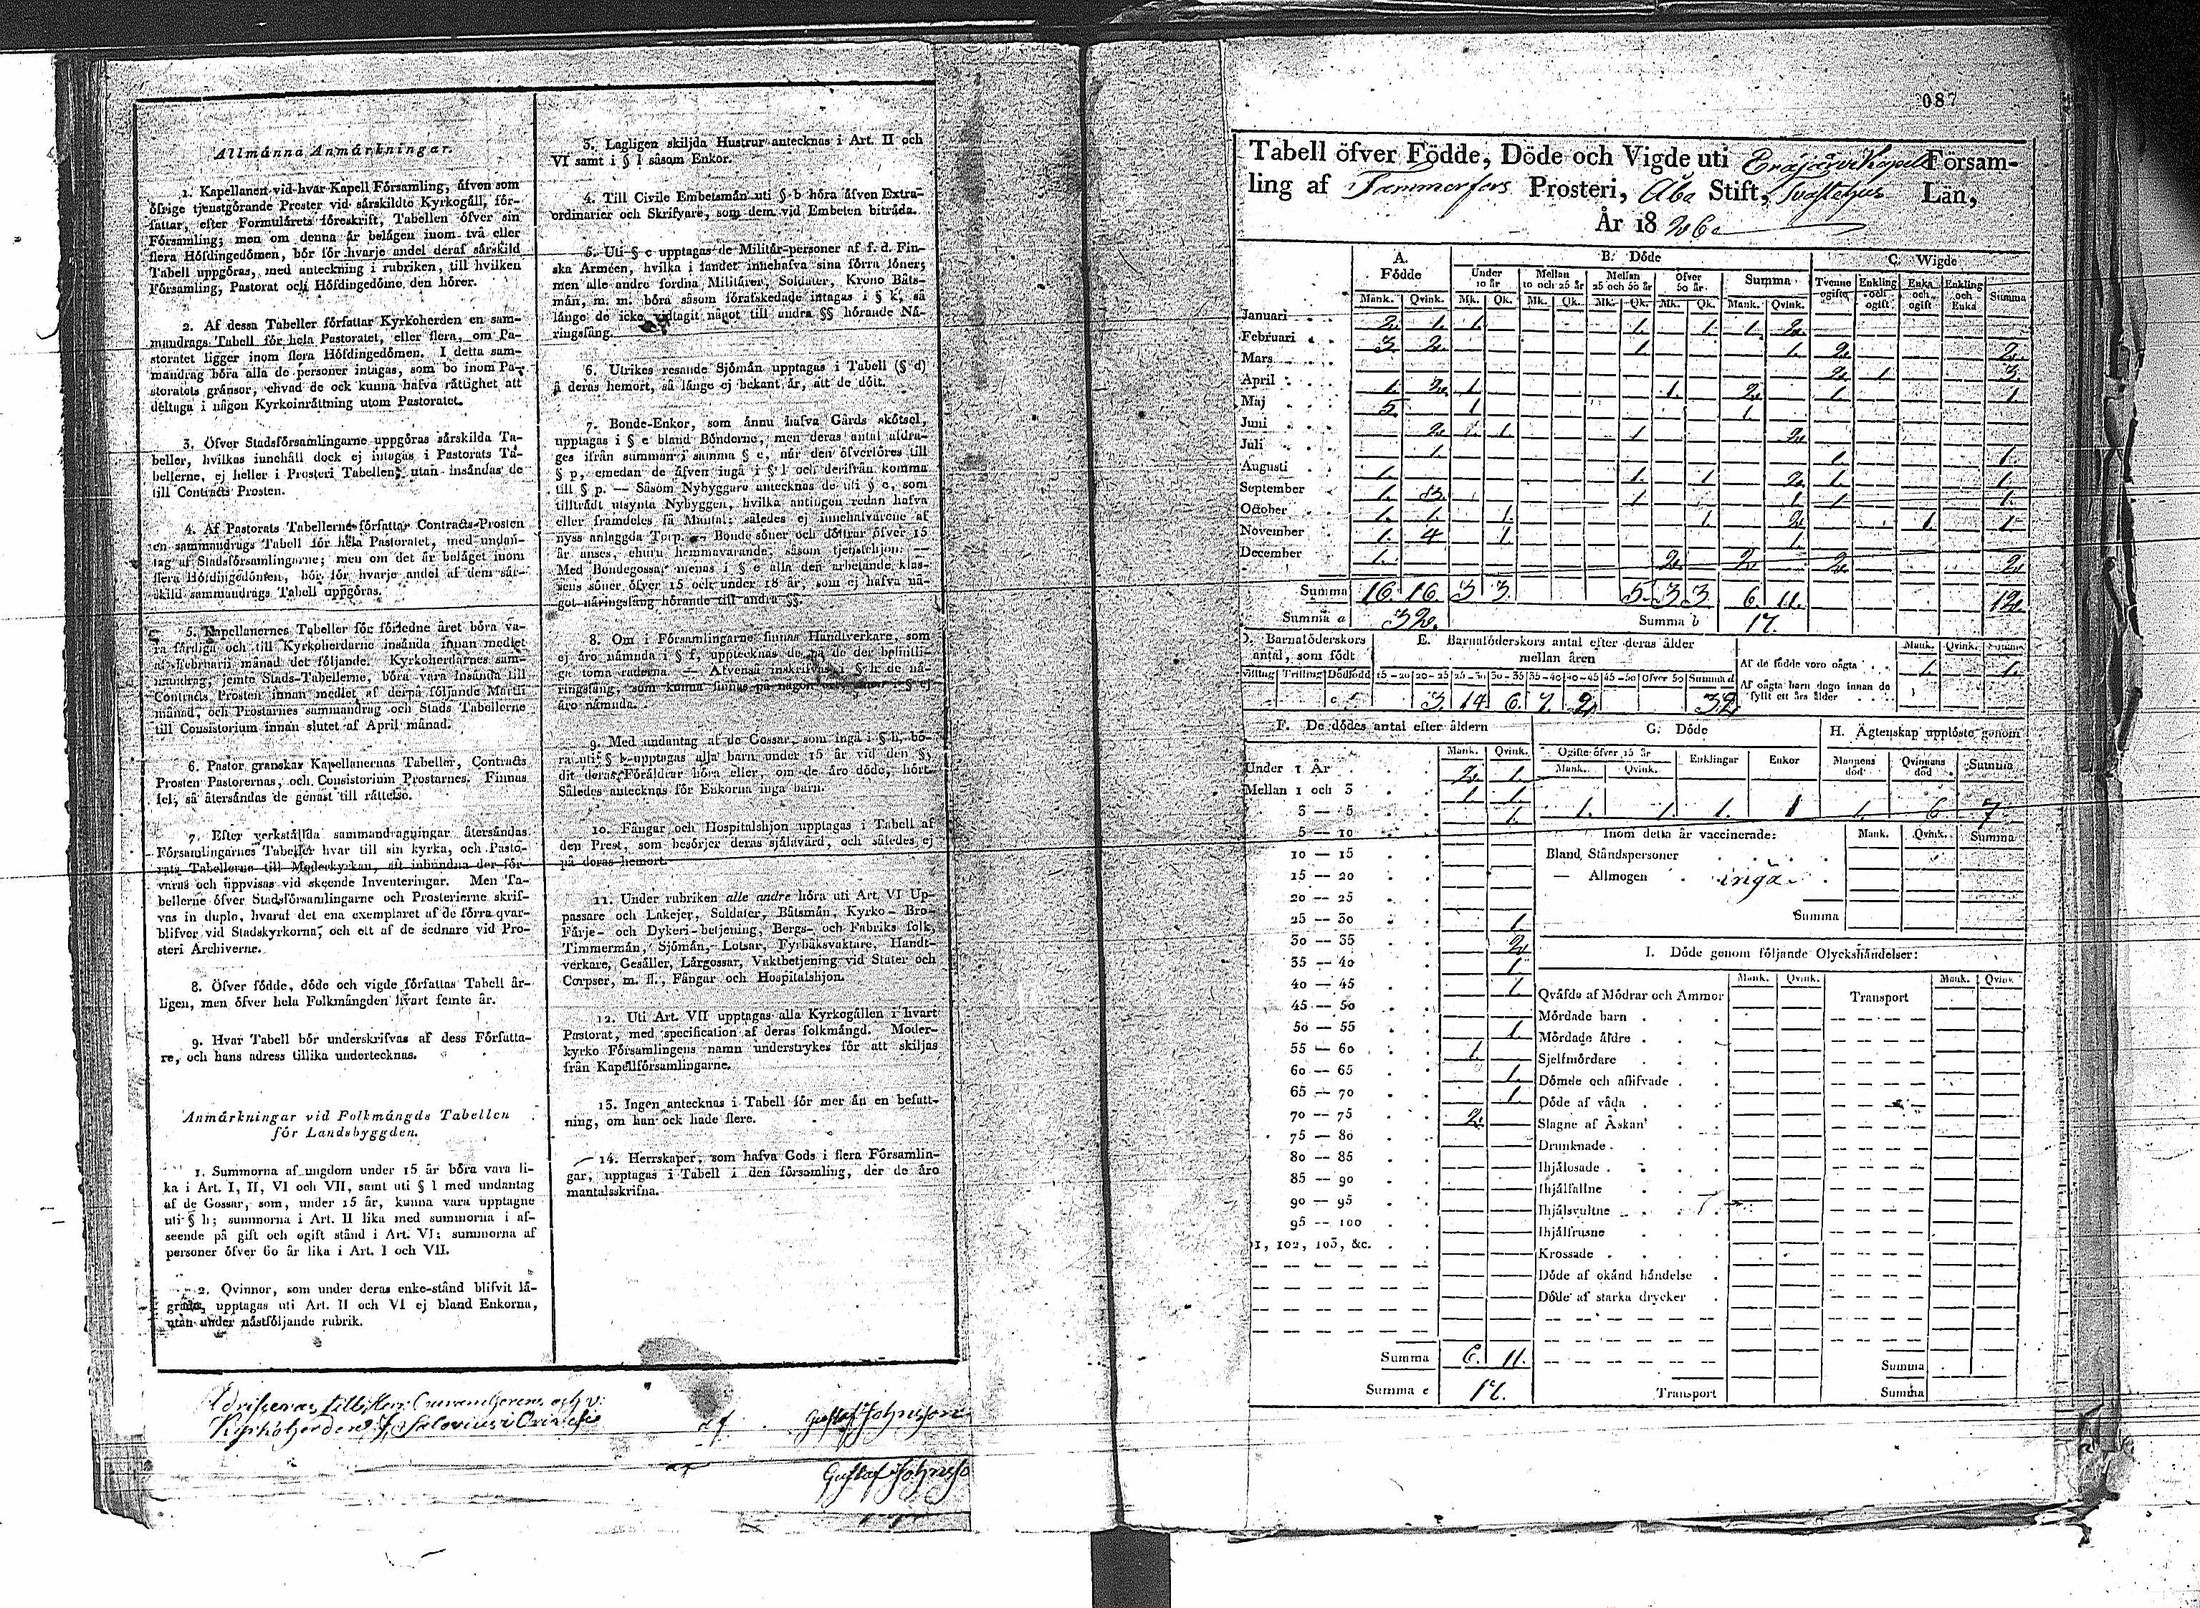 Allmånna Anmårkningar.
1. Kapellanen vid hvar Kapell Fórsamling, åfven som
ófrige tjenstgórande Prester vid sårskildte Kyrkogåll, fór-
fattar, efter Formulårets fóreskrift, Tabellen ófver sin
Fórsamling; men om denna år belågen inom två eller
flera Hófdingedómen, bór fór hvarje andel deraf sårskild
Tabell uppgóras, med anteckning i rubriken, till hvilken
Fórsamling, Pastorat och Hófdingedóme den hórer.
2. Af dessa Tabeller fórfattar Kyrkoherden en sam-
mandrags Tabell fór hela Pastoratet, eller flera, om Pa-
storatet ligger inom flera Hófdingedómen. I detta sam-
mandrag bóra alla de personer intagas, som bo inom Pa-
storatets grånsor, ehvad de ock kunna hafva råttighet att
deltaga i någon Kyrkoinråttning utom Pastoratet.
3. Ófver Stadsfórsamlingarne uppgóras sårskilda Ta-
beller, hvilkas innehåll dock ej intages i Pastorats Ta-
bellerne, ej heller i Prosteri Tabellen, utan insåndas de
till Contracts Prosten.
4. Af Pastorats Tabellerne fórfattar Contracts-Prosten
en sammandrags Tabell fór hela Pastoratet, med undan-
tag af Stadsfórsamlingarne; men om det år belåget inom
flera Hófdingedómen, bór fór hvarje andel af dem sår-
skild sammandrags Tabell uppgóras.
5. Kapellanernes Tabeller fór fórledne året bóra va-
ra fårdiga och till Kyrkoherdarne insånda innan medlet
af Februarii månad det fóljande. Kyrkoherdarnes sam-
mandrag, jemte Stads-Tabellerne, bóra vara insånda till
Contracts Prosten innan medlet af derpå fóljande Martii
månad, och Prostarnes sammandrag och Stads Tabellerne
till Consistorium innan slutet af April månad.
6. Pastor granskar Kapellanernas Tabeller, Contracts
Prosten Pastorernas, och Consistorium Prostarnes. Finnas
fel, så återsåndas de genast till råttelse.
7. Efter verkstållda sammandragningar återsåndas
Fórsamlingarnes Tabeller hvar till sin kyrka, och Pasto-
rats Tabellerne till Moderkyrkan, att inbindna der fór-
varas och uppvisas vid skeende Inventeringar. Men Ta-
bellerne ófver Stadsfórsamlingarne och Prosterierne skrif-
vas in duplo, hvaraf det ena exemplaret af de fórra qvar-
blifver vid Stadskyrkorna, och ett af de sednare vid Pro-
steri Archiverne.
8. Ófver fódde, dóde och vigde fórfattas Tabell år-
ligen, men ófver hela Folkmångden hvart femte år.
9. Hvar Tabell bór underskrifvas af dess Fórfatta-
re, och hans adress tillika undertecknas.
Anmårkningar vid Folkmångds Tabellen
fór Landsbyggden.
1. Summorna af ungdom under 15 år bóra vara li-
ka i Art. I, II, VI och VII, samt uti § l med undantag
af de Gossar, som, under 15 år, kunna vara upptagne
uti § h; summorna i Art. II lika med summorna i af-
seende på gift och ogift stånd i Art. VI; summorna af
personer ófver 60 år lika i Art. I och VII.
2. Qvinnor, som under deras enke-stånd blifvit lå-
grade, upptagas uti Art. II och VI ej bland Enkorna,
utan under nåstfóljande rubrik.
3. Lagligen skiljda Hustrur antecknas i Art. II och
VI samt i § l såsom Enkor.
4. Till Civile Embetsmån uti § b hóra åfven Extra-
ordinarier och Skrifvare, som dem vid Embeten bitråda.
5. Uti § c upptagas de Militår-personer af f. d. Fin-
ska Arméen, hvilka i landet innehafva sina fórra lóner;
men alle andre fordna Militårer, Soldater, Krono Båts-
mån, m. m. bóra såsom fórafskedade intagas i § k, så
långe de icke vidtagit något till andra §§ hórande Nå-
ringsfång.
6. Utrikes resande Sjómån upptagas i Tabell (§ d)
å deras hemort, så långe ej bekant år, att de dótt.
7. Bonde-Enkor, som ånnu hafva Gårds skótsel,
upptagas i § e bland Bónderne, men deras antal afdra-
ges ifrån summan i samma § e, når den ófverfóres till
§ p, emedan de åfven ingå i § l och derifrån komma
till § p. — Såsom Nybyggare antecknas de uti § e, som
tilltrådt utsynta Nybyggen, hvilka antingen redan hafva
eller framdeles få Mantal; således ej innehafvarene af
nyss anlaggda Torp. — Bonde sóner och dóttrar ófver 15
år anses, ehuru hemmavarande, såsom tjenstehjon. —
Med Bondegossar menas i § e alla den arbetande klas-
sens sóner ófver 15 och under 18 år, som ej hafva nå-
got nåringsfång hórande till andra §§.
8. Om i Fórsamlingarne finnas Handtverkare, som
ej åro nåmnda i § f, upptecknas de på de der befintli-
ga toma raderna. — Åfvenså inskrifvas i § h de nå-
ringsfång, som kunna finnas på någon ort, men i § ej
åro nåmnda.
9. Med undantag af de Gossar, som ingå i § h, bó-
ra uti § l upptagas alla barn under 15 år vid den §,
dit deras Fóråldrar hóra eller, om de åro dóde, hórt.
Således antecknas fór Enkorna inga barn.
10. Fångar och Hospitalshjon upptagas i Tabell af
den Prest, som besórjer deras sjålavård, och således ej
på deras hemort.
11. Under rubriken alle andre hóra uti Art. VI Up-
passare och Lakejer, Soldater, Båtsmån, Kyrko- Bro-
Fårje- och Dykeri-betjening, Bergs- och Fabriks folk,
Timmermån, Sjómån, Lotsar, Fyrbåksvaktare, Handt-
verkare, Gesåller, Lårgossar, Vaktbetjening vid Stater och
Corpser, m. fl., Fångar och Hospitalshjon.
12. Uti Art. VII upptagas alla Kyrkogållen i hvart
Pastorat, med specification af deras folkmångd. Moder-
kyrko Fórsamlingens namn understrykes fór att skiljas
från Kapellfórsamlingarne.
13. Ingen antecknas i Tabell fór mer ån en befatt-
ning, om han ock hade flere.
14. Herrskaper, som hafva Gods i flera Fórsamlin-
gar, upptagas i Tabell i den fórsamling, der de åro
mantalsskrifna.
Kyrkoherden
af Gustaf Johnsson
Gustaf Johnsso
087
Tabell ófver Fódde, Dóde och Vigde uti Eräjärvi Kapell Fórsam-
ling af Tammerfors Prosteri, Åbo Stift, Tavastehus Lån,
År 1826
A. Fódde B. Dóde C. Wigde
Under 10 år Mellan 10 och 25 år Mellan 25 och 50 år Ófver 50 år Summa Tvenne ogifte Enkling och ogift Enka och ogift Enkling och Enka Summa
Mank. Qvink. Mk. Qk. Mk. Qk. Mk. Qk. Mk. Qk. Mank. Qvink.
Januari 2. 1. 1. 1. 1. 1. 2.
Februari 3. 2. 1. 1. 2. 2.
Mars 2. 1. 3.
April 1. 2. 1. 1. 2. 1. 1.
Maj 5. 1. 1.
Juni 2. 1. 1. 2.
Juli 1. 1. 1.
Augusti 1. 1. 1. 2. 1. 1.
September 1. 3. 1. 1. 1. 1.
October 1. 1. 1. 1. 2. 1. 1
November 1. 4 1. 1.
December 1. 2. 2. 2. 2
Summa 16. 16. 3 3. 5. 3 3 6. 11. 12.
Summa a 32. Summa b 17.
D. Barnafóderskors antal, som fódt
E. Barnafóderskors antal efter deras ålder mellan åren
Mank. Qvink. Summa
Af de fódde voro oågta 1. 1.
Af oågta barn dogo innan de fyllt ett års ålder
Tvilling Trilling Dódfódd 15-20 20-25 25-30 30-35 35-40 40-45 45-50 Ófver 50 Summa d
3. 14. 6. 7. 2. 32
F. De dódes antal efter åldern
Mank. Qvink.
Under 1 År 2. 1.
Mellan 1 och 3 1. 1.
3 — 5 1.
5 — 10
10 — 15
15 — 20
20 — 25
25 — 30 1.
30 — 35 2.
35 — 40 1.
40 — 45 1.
45 — 50
50 — 55 1.
55 — 60 1.
60 — 65 1.
65 — 70 1
70 — 75 2.
75 — 80
80 — 85
85 — 90
90 — 95
95 — 100
1, 102, 103, &c.
Summa 6. 11.
Summa e 17.
G. Dóde
Ogifte ófver 15 år Enklingar Enkor
Mank. Qvink.
1. 1. 1. 1
H. Ågtenskap upplóste genom
Mannens dód Qvinnans dód Summa
1. 6 7
Inom detta år vaccinerade: Mank. Qvink. Summa
Bland Ståndspersoner
— Allmogen inga
Summa
I. Dóde genom fóljande Olyckshåndelser:
Mank. Qvink. Mank. Qvink.
Qvåfde af Módrar och Ammor Transport
Mórdade barn
Mórdade åldre
Sjelfmórdare
Dómde och aflifvade
Dóde af våda
Slagne af Åskan
Drunknade
Ihjålosade
Ihjålfallne
Ihjålsvultne
Ihjålfrusne
Krossade
Dóde af okånd håndelse
Dóde af starka drycker
Summa
Transport Summa